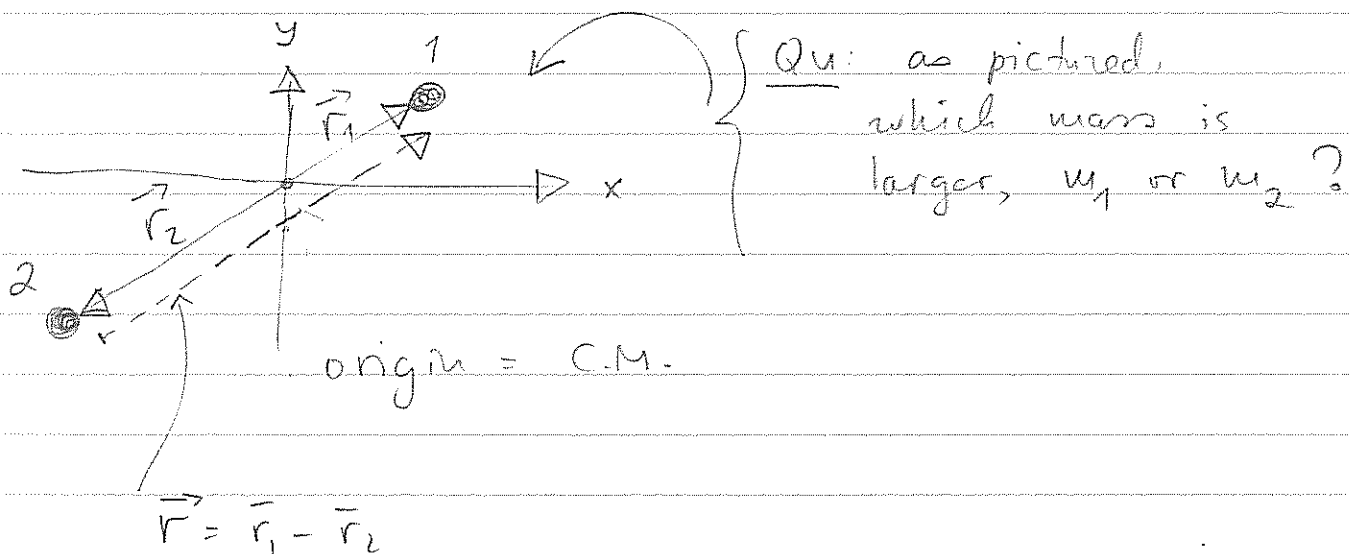 y
1
r⃗₁
Qu: as pictured,
which mass is
larger, m₁ or m₂ ?
x
r⃗₂
2
origin = C.M.
r⃗ = r̄₁ - r̄₂